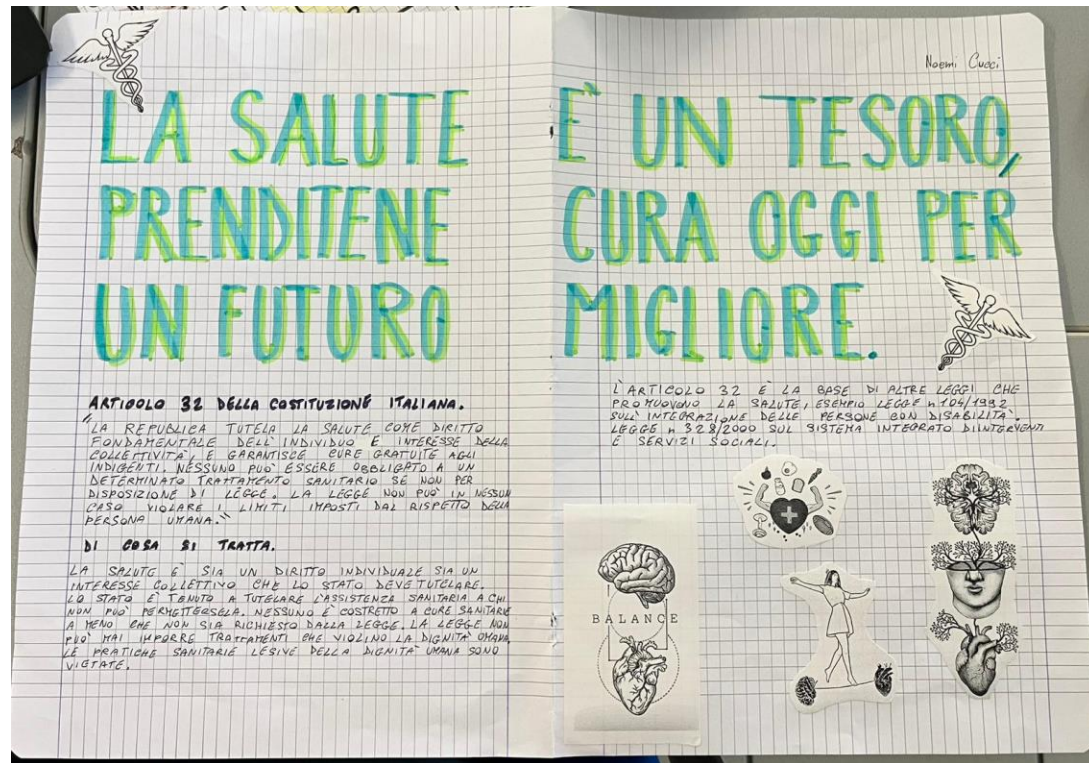 Noemi Cucci
LA SALUTE E' UN TESORO,
PRENDITENE CURA OGGI PER
UN FUTURO MIGLIORE.
ARTICOLO 32 DELLA COSTITUZIONE ITALIANA.
"LA REPUBLICA TUTELA LA SALUTE COME DIRITTO
FONDAMENTALE DELL'INDIVIDUO E INTERESSE DELLA
COLLETTIVITA', E GARANTISCE CURE GRATUITE AGLI
INDIGENTI. NESSUNO PUO' ESSERE OBBLIGATO A UN
DETERMINATO TRATTAMENTO SANITARIO SE NON PER
DISPOSIZIONE DI LEGGE. LA LEGGE NON PUO' IN NESSUN
CASO VIOLARE I LIMITI IMPOSTI DAL RISPETTO DELLA
PERSONA UMANA."
DI COSA SI TRATTA.
LA SALUTE E' SIA UN DIRITTO INDIVIDUALE SIA UN
INTERESSE COLLETTIVO CHE LO STATO DEVE TUTELARE.
LO STATO E' TENUTO A TUTELARE L'ASSISTENZA SANITARIA A CHI
NON PUO' PERMETTERSELA. NESSUNO E' COSTRETTO A CURE SANITARIE
A MENO CHE NON SIA RICHIESTO DALLA LEGGE. LA LEGGE NON
PUO' MAI IMPORRE TRATTAMENTI CHE VIOLINO LA DIGNITA' UMANA,
LE PRATICHE SANITARIE LESIVE DELLA DIGNITA' UMANA SONO
VIETATE.
L'ARTICOLO 32 E' LA BASE DI ALTRE LEGGI CHE
PROMUOVONO LA SALUTE, ESEMPIO LEGGE n 104/1992
SULL'INTEGRAZIONE DELLE PERSONE CON DISABILITA'.
LEGGE n 328/2000 SUL SISTEMA INTEGRATO DI INTERVENTI
E SERVIZI SOCIALI.
BALANCE